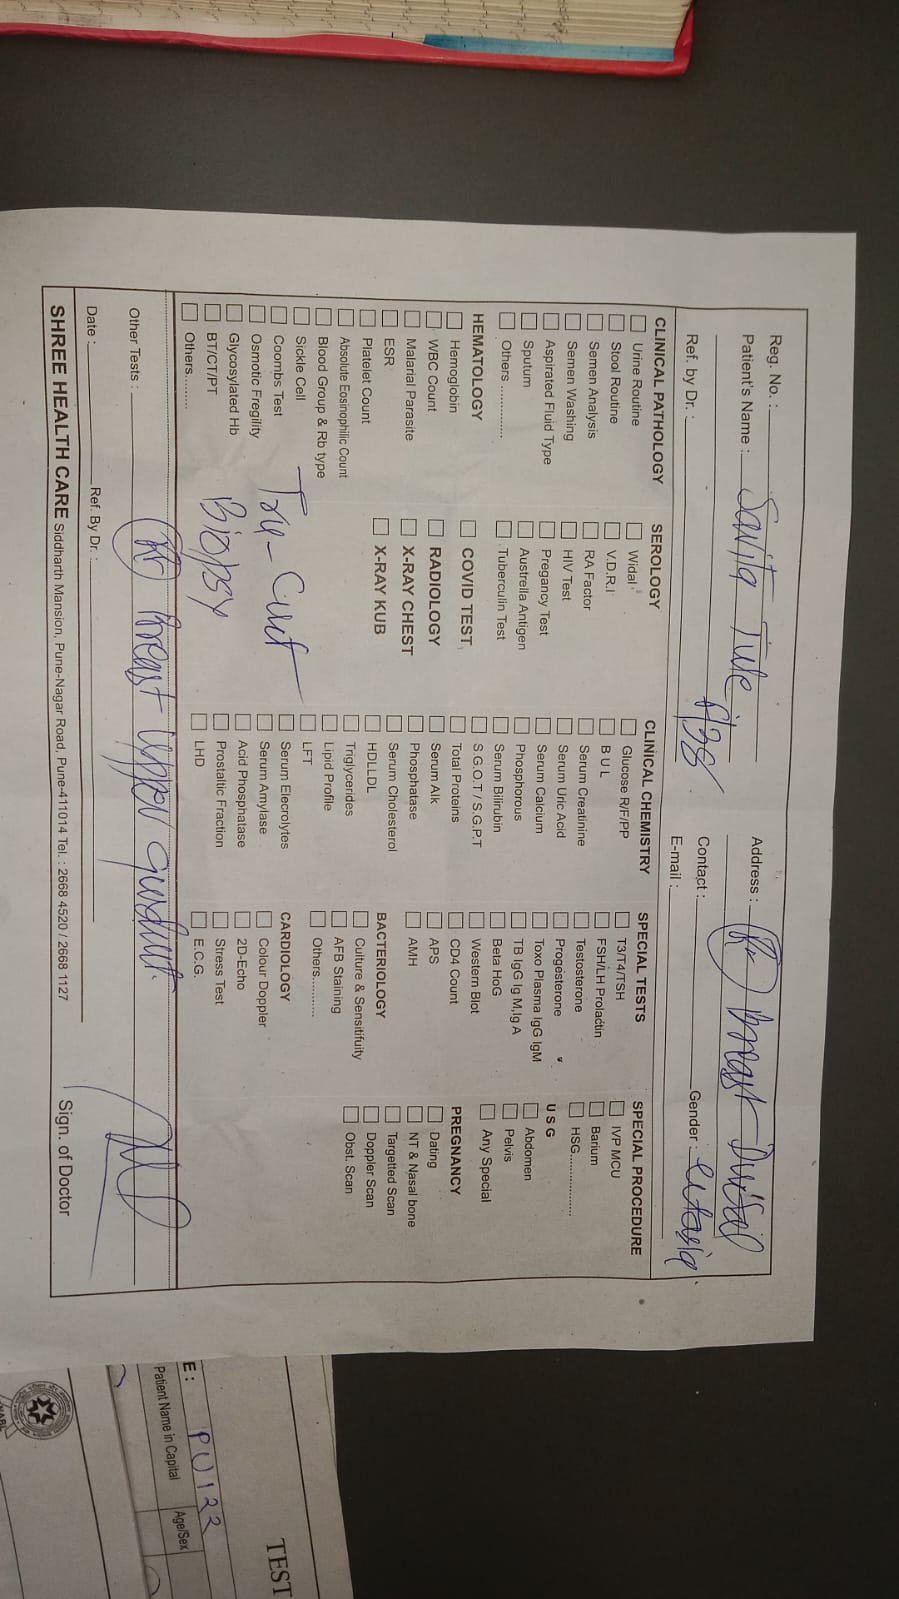 Reg. No. :
Patient's Name : Savita Tule
F/38
Ref. by Dr. :
Address : Rt Breast Ductal ectasia
Contact :
Gender :
E-mail :
CLINICAL PATHOLOGY
Urine Routine
Stool Routine
Semen Analysis
Semen Washing
Aspirated Fluid Type
Sputum
Others ..............
HEMATOLOGY
Hemoglobin
WBC Count
Malarial Parasite
ESR
Platelet Count
Absolute Eosinophilic Count
Blood Group & Rb type
Sickle Cell
Coombs Test
Osmotic Fregility
Glycosylated Hb
BT/CT/PT
Others........
SEROLOGY
Widal
V.D.R.I
RA Factor
HIV Test
Pregancy Test
Austrella Antigen
Tuberculin Test
COVID TEST
RADIOLOGY
X-RAY CHEST
X-RAY KUB
Tru-Cut
Biopsy
CLINICAL CHEMISTRY
Glucose R/F/PP
B U L
Serum Creatinine
Serum Uric Acid
Serum Calcium
Phosphorous
Serum Bilirubin
S.G.O.T / S.G.P.T
Total Proteins
Serum Alk
Phosphatase
Serum Cholesterol
HDLLDL
Triglycerides
Lipid Profile
LFT
Serum Elecrolytes
Serum Amylase
Acid Phosphatase
Prostaltic Fraction
LHD
SPECIAL TESTS
T3/T4/TSH
FSH/LH Prolactin
Testosterone
Progesterone
Toxo Plasma IgG IgM
TB IgG Ig M,Ig A
Beta HoG
Western Blot
CD4 Count
APS
AMH
BACTERIOLOGY
Culture & Sensitifuity
AFB Staining
Others............
CARDIOLOGY
Colour Doppler
2D-Echo
Stress Test
E.C.G.
SPECIAL PROCEDURE
IVP MCU
Barium
HSG................
U S G
Abdomen
Pelvis
Any Special
PREGNANCY
Dating
NT & Nasal bone
Targetted Scan
Doppler Scan
Obst. Scan
Other Tests : Rt Breast upper quadrant.
Date :
Ref. By Dr. :
Sign. of Doctor
SHREE HEALTH CARE Siddharth Mansion, Pune-Nagar Road, Pune-411014 Tel. : 2668 4520 / 2668 1127
TEST
E : PU122
Patient Name in Capital
Age/Sex